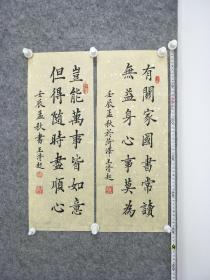 有關家國書常讀
無益身心事莫為
壬辰孟秋於菏澤王学超
豈能萬事皆如意
但得隨時盡順心
壬辰孟秋書王学超